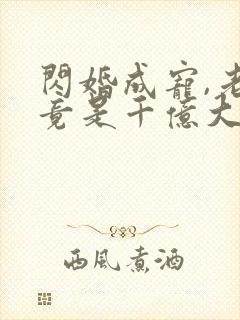 閃婚成寵,老
竟是千億大
西風煮酒